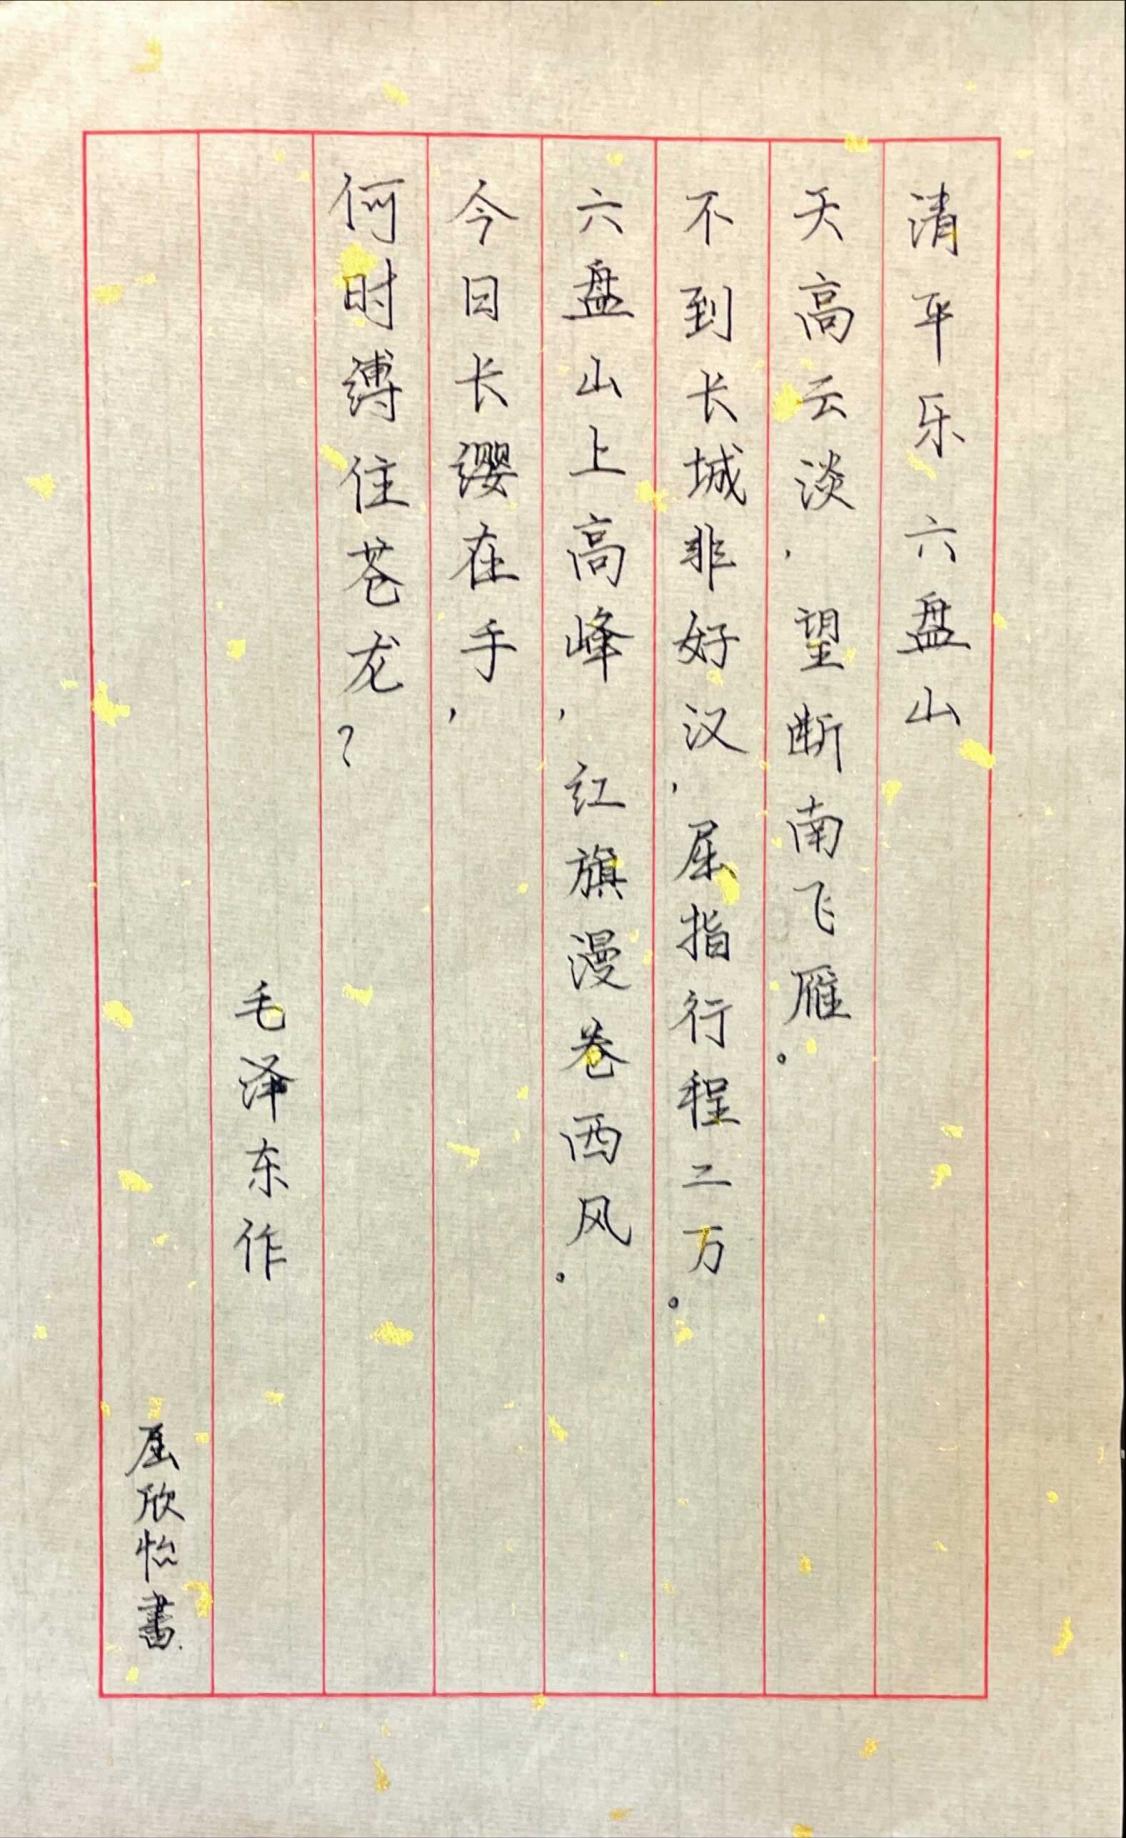 清平乐六盘山
天高云淡，望断南飞雁。
不到长城非好汉，屈指行程二万。
六盘山上高峰，红旗漫卷西风。
今日长缨在手，
何时缚住苍龙？
毛泽东作
屈欣怡書